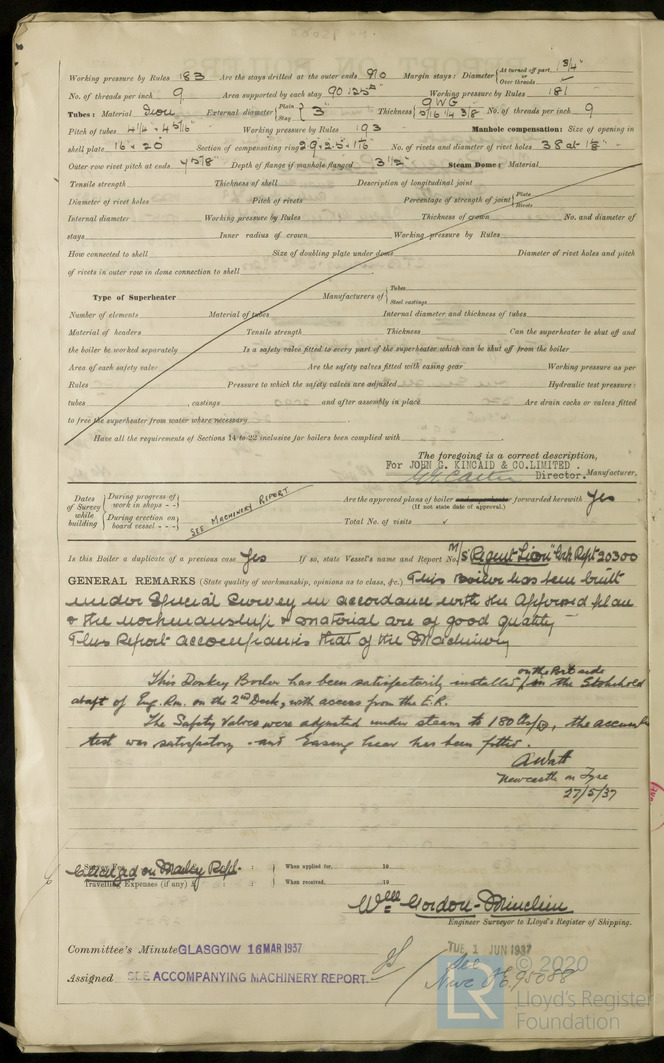 Working pressure by Rules 183 Are the stays drilled at the outer ends no Margin stays: Diameter { At turned off part, 1 3/4" Over threads
No. of threads per inch 9 Area supported by each stay Working pressure by Rules 181
Tubes: Material Iron External diameter { Plain Stay 3" Thickness { 9 WG 5/16 1/4 3/8 No. of threads per inch 9
Pitch of tubes Working pressure by Rules 193 Manhole compensation: Size of opening in
shell plate 16" x 20" Section of compensating ring No. of rivets and diameter of rivet holes 38 at 1 1/8"
Outer row rivet pitch at ends Depth of flange if manhole flanged 3 1/2" Steam Dome: Material
Tensile strength Thickness of shell Description of longitudinal joint
Diameter of rivet holes Pitch of rivets Percentage of strength of joint { Plate Rivets
Internal diameter Working pressure by Rules Thickness of crown No. and diameter of
stays Inner radius of crown Working pressure by Rules
How connected to shell Size of doubling plate under dome Diameter of rivet holes and pitch
of rivets in outer row in dome connection to shell
Type of Superheater Manufacturers of { Tubes Steel castings
Number of elements Material of tubes Internal diameter and thickness of tubes
Material of headers Tensile strength Thickness Can the superheater be shut off and
the boiler be worked separately Is a safety valve fitted to every part of the superheater which can be shut off from the boiler
Area of each safety valve Are the safety valves fitted with easing gear Working pressure as per
Rules Pressure to which the safety valves are adjusted Hydraulic test pressure:
tubes , castings and after assembly in place Are drain cocks or valves fitted
to free the superheater from water where necessary
Have all the requirements of Sections 14 to 22 inclusive for boilers been complied with
The foregoing is a correct description,
For JOHN G. KINCAID & CO. LIMITED.
Director. Manufacturer.
Dates of Survey while building { During progress of work in shops - - During erection on board vessel - - - } SEE MACHINERY REPORT
Are the approved plans of boiler and superheater forwarded herewith Yes
(If not state date of approval.)
Total No. of visits
Is this Boiler a duplicate of a previous case Yes If so, state Vessel's name and Report No. M/S "Regent Lion" Gck Rept 20300
GENERAL REMARKS (State quality of workmanship, opinions as to class, &c.) This Boiler has been built
under Special Survey in accordance with the Approved plan
& the workmanship & material are of good quality
This Report accompanies that of the Machinery
This Donkey Boiler has been satisfactorily installed on the Port side in the Stokehold
abaft of Eng. Rm. on the 2nd Deck, with access from the E.R.
The Safety Valves were adjusted under steam to 180 lbs, the accum
test was satisfactory and Easing Gear has been fitted.
A Watt
Newcastle on Tyne
27/5/37
Survey Fee Charged on Machy Rept. When applied for, 19
Travelling Expenses (if any) £ : : When received, 19
Wm Gordon-Minchin
Engineer Surveyor to Lloyd's Register of Shipping.
Committee's Minute GLASGOW 16 MAR 1937
TUE 1 JUN 1937
Assigned SEE ACCOMPANYING MACHINERY REPORT.
See
Nwc F.E. 95088
LR © 2020
Lloyd's Register
Foundation